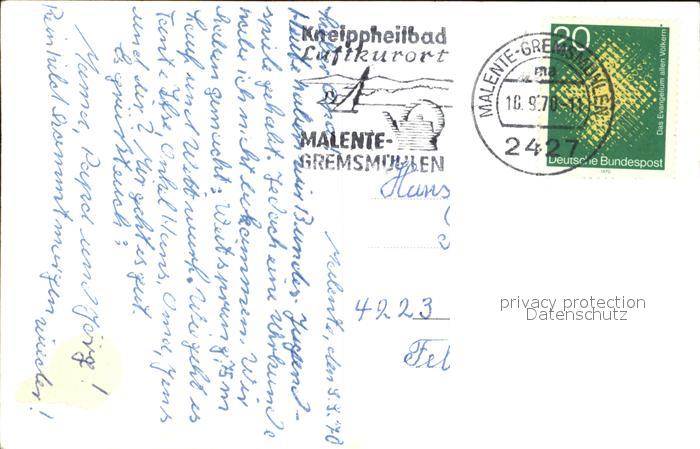 Kneippheilbad
Luftkurort
MALENTE-
GREMSMÜHLEN
MALENTE-GREMSMÜHLEN
ma
10.9.70-11
2427
20
Das Evangelium allen Völkern
Deutsche Bundespost
1970
Malente, den 9.9.70
Heute haben wir Bundes-Jugend-
spiele gehabt. Jedoch eine Urkunde
habe ich nicht bekommen. Wir
haben gemacht: Weitsprung, 75m
Lauf und Weitwurf. Wie geht es
Tante Ilse, Onkel Hans, Oma, Jens
und dir? Mir geht es gut.
Es grüßt euch
Mom, Papa und Jörg!
kommt morgen wieder!
Hans
4223
privacy protection
Datenschutz